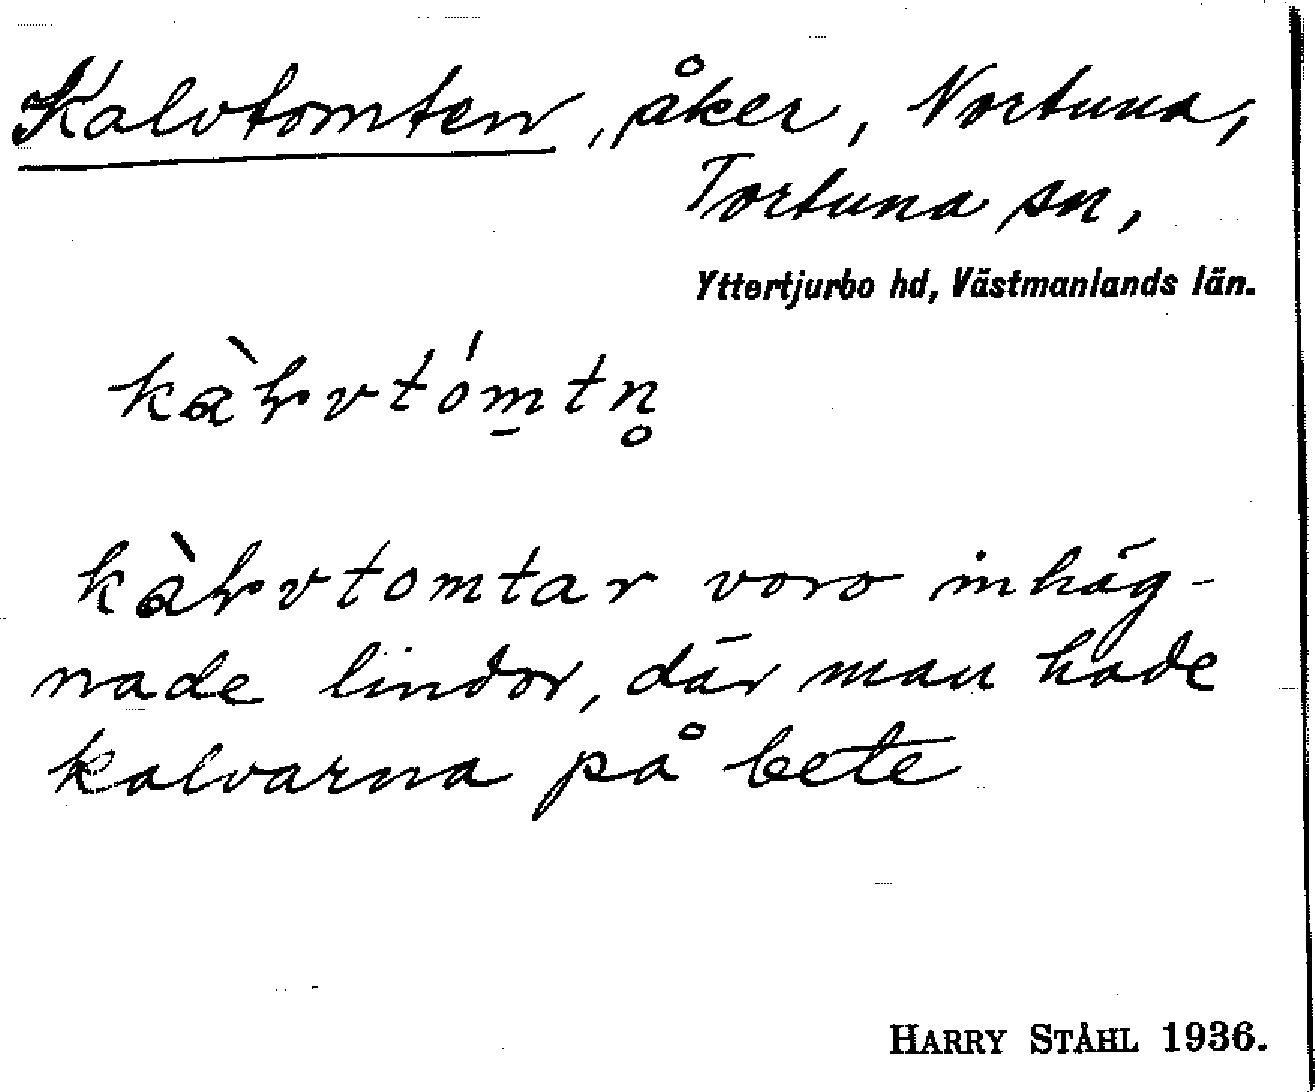 Kalvtomten, åker, Nortuna,
Tortuna sn,
Yttertjurbo hd, Västmanlands län.
kàɽvtóm̲tn̥
kàɽvtomtar voro inhäg-
nade lindor, där man hade
kalvarna på bete
HARRY STÅHL 1936.